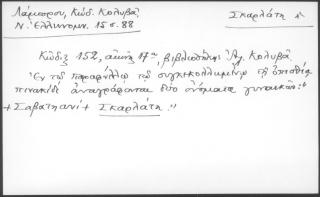 Λάμπρου, Κώδ. Κολυβᾶ Σκαρλάτη
Ν. Ἑλληνομν. 15 σ. 88
Κῶδιξ 152, αἰὼν 17ος, βιβλιοθήκης Ἀλ. Κολυβᾶ
Ἐν τῷ παραφύλλῳ τῷ συγκεκολλημένῳ τῇ ὀπισθίᾳ
πινακίδι ἀναγράφονται δύο ὀνόματα γυναικῶν:
+ Σαβατιανὶ + Σκαρλάτη."